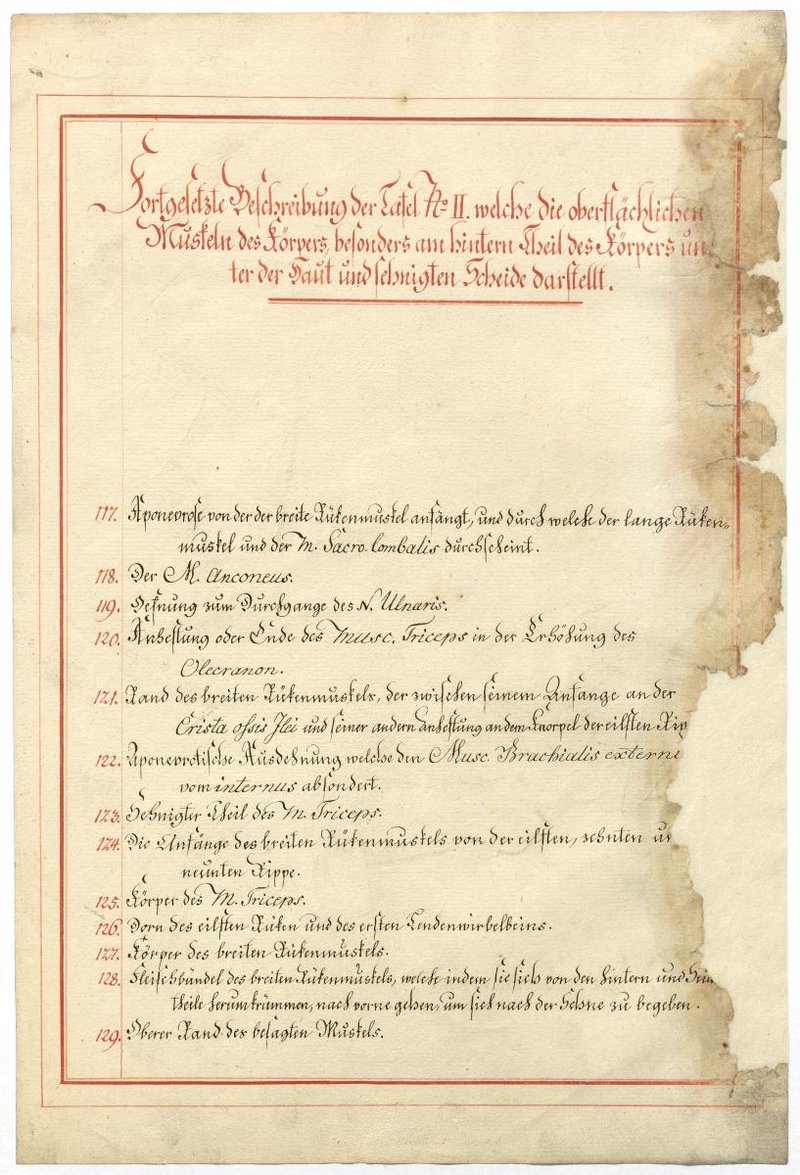 Fortgesetzte Beschreibung der Tafel No II. welche die oberflächlichen
Muskeln des Körpers, besonders am hintern Theil des Körpers un
ter der Haut und sehnigten Scheide darstellt.
117. Aponevrose von der der breite Rükenmuskel anfängt, und durch welche der lange Rüken-
muskel und der M. Sacro lombalis durchscheint.
118. Der M. Anconeus.
119. Oefnung zum Durchgange des N. Ulnaris.
120. Anheftung oder Ende des Musc. Triceps in der Erhöhung des
Olecranon.
121. Rand des breiten Rükenmuskels, der zwischen seinem Anfange an der
Crista ossis Ilei und seiner andern Anheftung an dem Knorpel der eilften Rip
122. Aponevrotische Ausdehnung welche den Musc. Brachialis externu
vom internus absondert.
123. Sehnigter Theil des M. Triceps.
124. Die Anfänge des breiten Rükenmuskels von der eilften, zehnten un
neunten Rippe.
125. Körper des M. Triceps.
126. Dorn des eilften Rüken und des ersten Lendenwirbelbeins.
127. Körper des breiten Rükenmuskels.
128. Fleischbündel des breiten Rükenmuskels, welche indem sie sich von den hintern und
theile herumkrümmen, nach vorne gehen, um sich nach der Sehne zu begeben.
129. Oberer Rand des besagten Muskels.